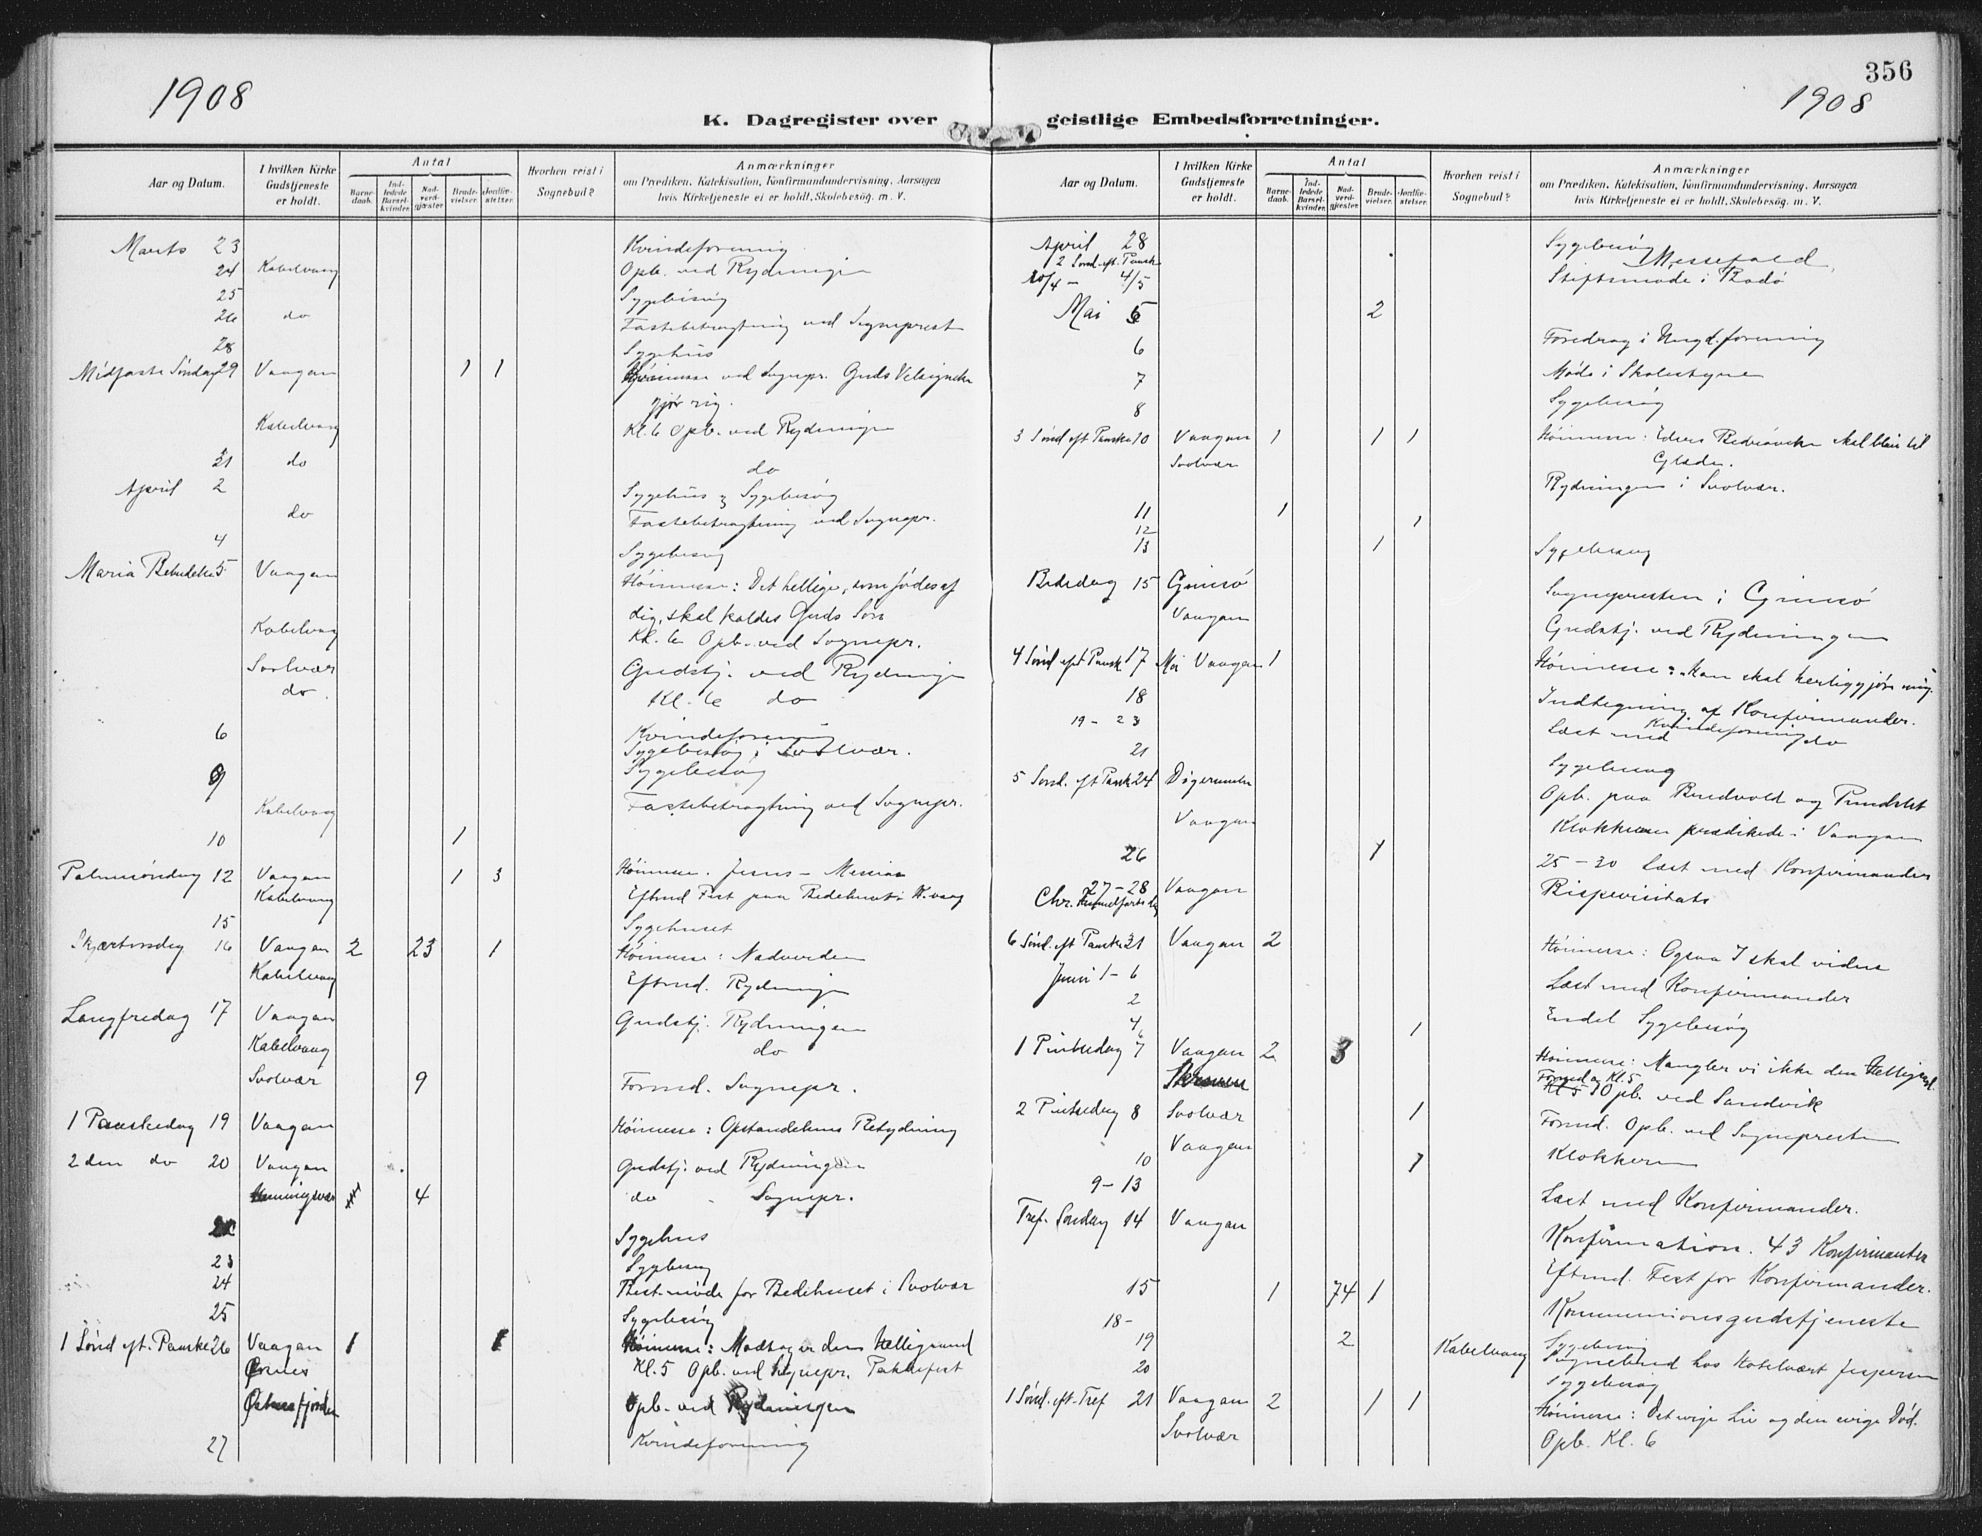 1908
K. Dagregister over
Aar og Datum.
I hvilken Kirke Gudstjeneste er holdt.
Antal
Barnedaab.
Indledede Barselkvinder.
Nadverdgjæster.
Brudevielser.
Jordfæstelser.
Hvorhen reist i Sognebud?
Anmærkninger
om Prædiken, Katekisation, Konfirmandundervisning, Aarsagen
hvis Kirketjeneste ei er holdt, Skolebesøg. m. V.
Marts 23 Kvindeforening
24 Kabelvaag Opb. ved Rydningen
25 Sygebesøg
26 do Fastebetragtning ved Sogneprest
28 Sygehus
Midfaste Søndag 29 Vaagan 1 1 Høimesse ved Sognepr. Guds Velsignelse
gjør rig.
Kabelvaag Kl. 6 Opb. ved Rydningen
31 do do
April 2 Sygehus & Sygebesøg
do Fastebetragtning ved Sognepr.
4 Sygebesøg
Maria Bebudelse 5 Vaagan Høimesse: Det hellige, som fødes af
dig, skal kaldes Guds Søn
Kabelvaag Kl. 6 Opb. ved Sognepr.
Svolvær Gudstj. ved Rydningen
do Kl. 6 do
6 Kvindeforening
Sygebesøg i Svolvær.
9 Sygebesøg
Kabelvaag Fastebetragtning ved Sognepr.
10 1
Palmesøndag 12 Vaagan 1 3 Høimesse. Jesus - Messias
Kabelvaag Eftmd Fest paa Bedehuset i K.vaag
15 Sygehuset
Skjærtorsdag 16 Vaagan 2 23 1 Høimesse: Nadverden
Kabelvaag Eftmd. Rydningen
Langfredag 17 Vaagan Gudstj. Rydningen
Kabelvaag do
Svolvær 9 Formd. Sognepr.
1 Paaskedag 19 Vaagan Høimesse: Opstandelsens Betydning
2den do 20 Vaagan Gudstj. ved Rydningen
Henningsvær 4 do Sognepr.
Sygehus
23 Sygebesøg
24 Fest-møde for Bedehuset i Svolvær
25 Sygebesøg
1 Sønd eft. Paaske 26 Vaagan 1 1 Høimesse: Modtager den Helligaand
Ørsnes Kl. 5 Opb. ved Sognepr. Pakkefest
Østnesfjorden Opb. ved Rydningen
27 Kvindeforening
356
1908
geistlige Embedsforretninger.
Aar og Datum.
I hvilken Kirke Gudstjeneste er holdt.
Antal
Barnedaab.
Indledede Barselkvinder.
Nadverdgjæster.
Brudevielser.
Jordfæstelser.
Hvorhen reist i Sognebud?
Anmærkninger
om Prædiken, Katekisation, Konfirmandundervisning, Aarsagen
hvis Kirketjeneste ei er holdt, Skolebesøg. m. V.
April 28 Sygebesøg
2 Sønd. eft. Paaske Messefald
4/5 Stiftsmøde i Bodø
Mai 5 2
6 Foredrag i Ungd.forening
7 Møde i Skolestyre
8 Sygebesøg
3 Sønd eft Paaske 10 Vaagan 1 1 1 Høimesse: Eders Bedrøvelse skal blive til
Svolvær Glæde.
Rydningen i Svolvær.
11 1
12 1
13 1 Sygebesøg
Bededag 15 Gimsø Sognepresten i Gimsø
Vaagan Gudstj. ved Rydningen
4 Sønd eft Paask 17 Mai Vaagan 1 Høimesse: Han skal herliggjøre mig.
18 Indtegning af Konfirmander.
19 - 23 Læst med do
21 Kvindeforening
Sygebesøg
5 Sønd. eft Paask 24 Digermulen Opb. paa Bredvold og Pundslet
Vaagan Klokkeren prædikede i Vaagan
26 1 25 - 30 Læst med Konfirmander
27 - 28 Vaagan Bispevisitats
Chr. Himmelfartsdag
6 Sønd. eft Paaske 31 Vaagan 2 Høimesse: Ogsaa I skal vidne
Juni 1 - 6 Læst med Konfirmander
2 Endel Sygebesøg
4 1
1 Pintsedag 7 Vaagan 2 3 Høimesse: Mangler vi ikke den Helligaand.
Skrova Formdag Kl. 5
Opb. ved Sandvik
2 Pintsedag 8 Svolvær 1 Formd. Opb. ved Sognepresten
Vaagan Klokkeren
10 1
9 - 13 Læst med Konfirmander.
Tref. Søndag 14 Vaagan Konfirmation. 43 Konfirmanter
Eftmd. Fest for Konfirmander.
15 1 74 1 Kommunionsgudstjeneste
18- Sygebesøg
19 2 Kabelvaag Sognebud hos Hotelvært Jespersen
20 Sygebesøg
1 Sønd. eft. Tref 21 Vaagan 2 1 1 Høimesse: Det evige Liv og den evige Død.
Svolvær Opb. Kl. 6